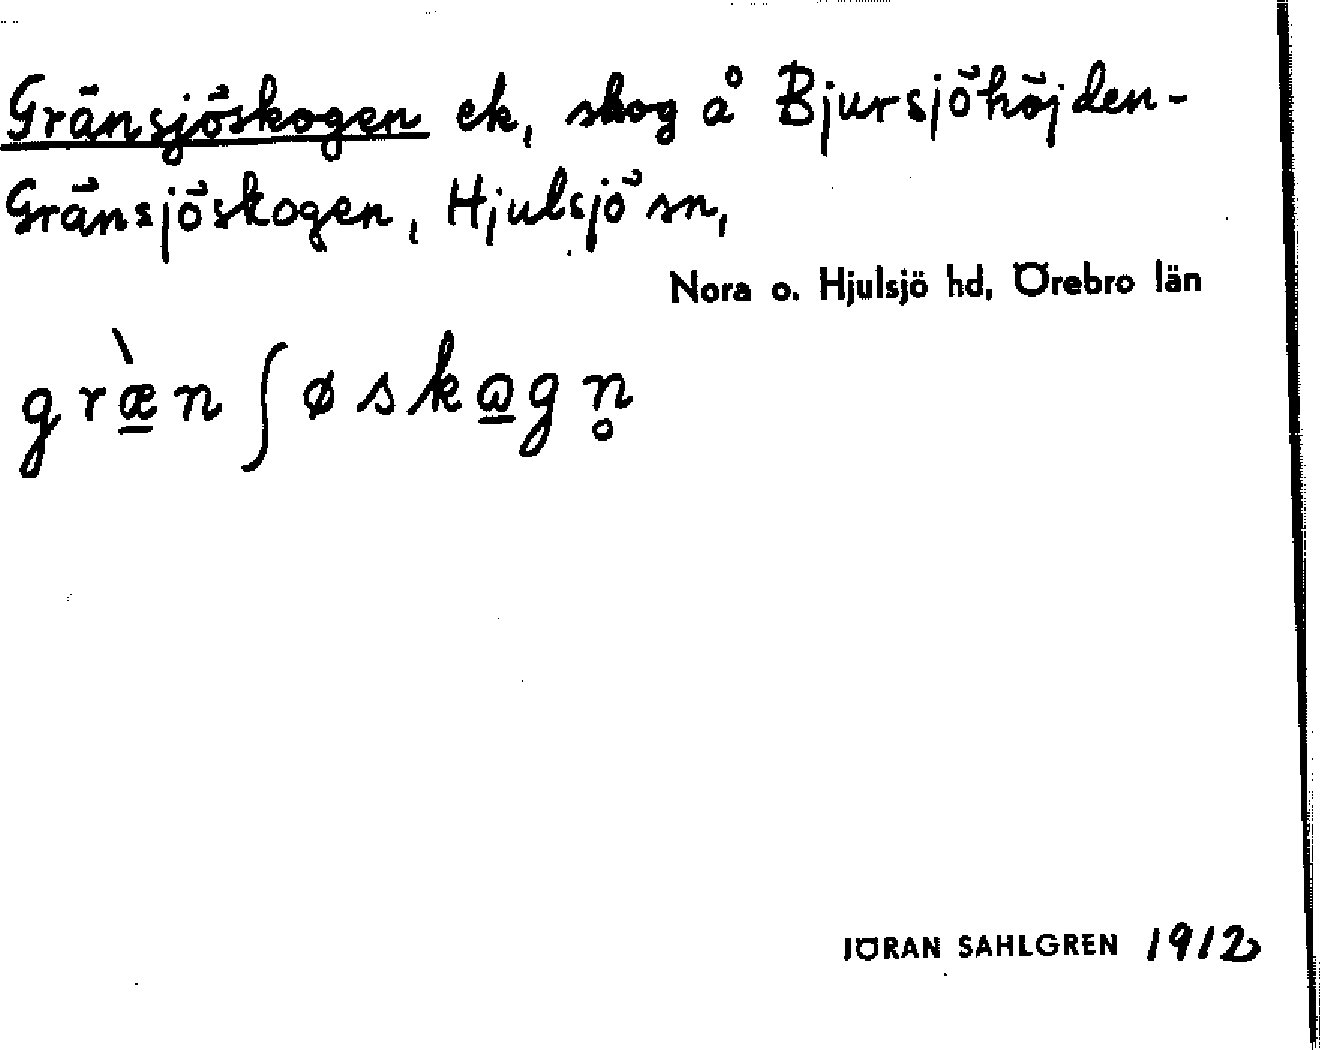 Gränsjöskogen ek, skog å Bjursjöhöjden-
Gränsjöskogen, Hjulsjö sn,
Nora o. Hjulsjö hd, Örebro län
græ̠̀nʃøskɷ̠gn̥
JÖRAN SAHLGREN 1912